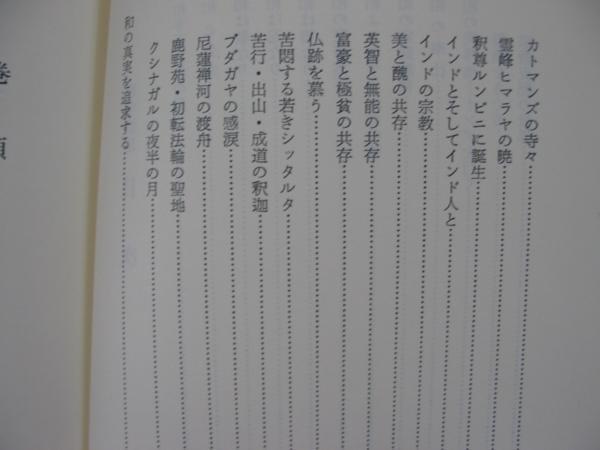 カトマンズの寺々
霊峰ヒマラヤの暁
釈尊ルンビニに誕生
インドとそしてインド人と
インドの宗教
美と醜の共存
英智と無能の共存
富豪と極貧の共存
仏跡を慕う
苦悶する若きシッタルタ
苦行・出山・成道の釈迦
ブダガヤの感涙
尼蓮禅河の渡舟
鹿野苑・初転法輪の聖地
クシナガルの夜半の月
和の真実を追求する